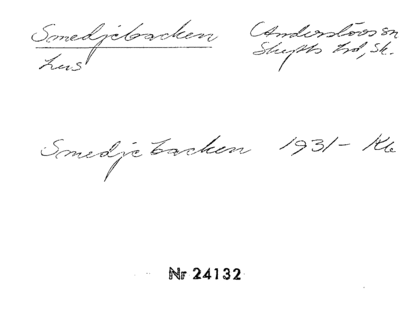 Smedjebacken Anderslövs sn
hus Skytts hd, Sk.
Smedjebacken 1931- Kle
Nr 24132